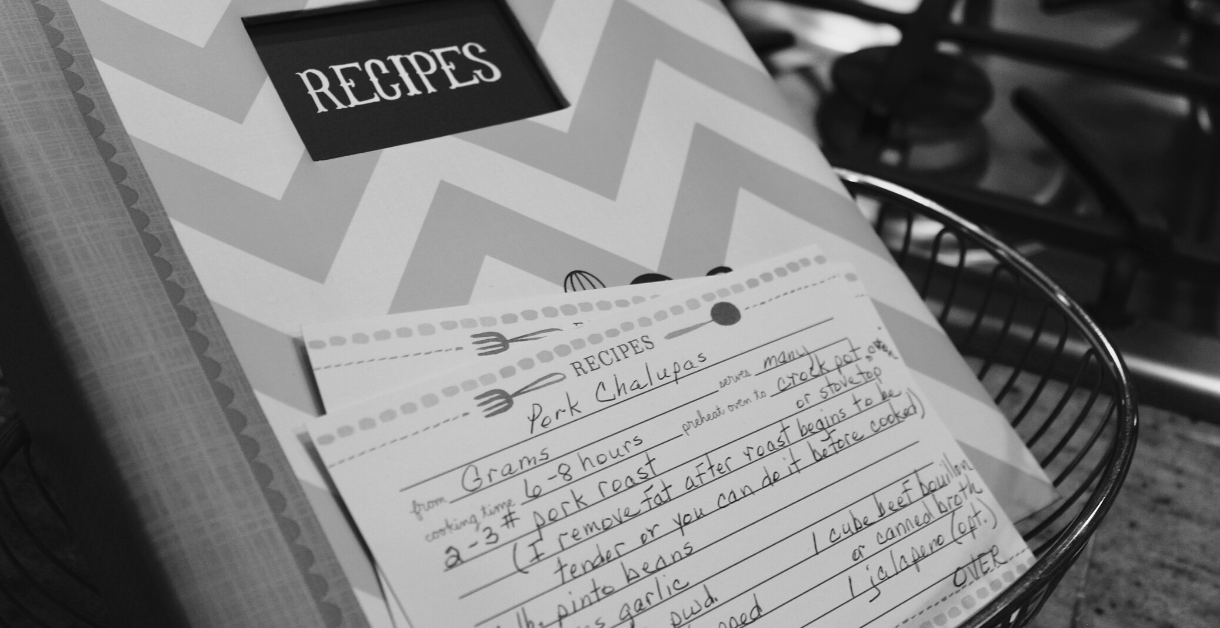 RECIPES
RECIPES
Pork Chalupas
from Grams serves many
cooking time 6-8 hours preheat oven to crock pot
oven
or stovetop
2-3# pork roast
(I remove fat after roast begins to be
tender or you can do it before cooked)
pinto beans
1 cube beef bouillon
or canned broth
garlic
1 jalapeno (opt.)
pwd.
OVER